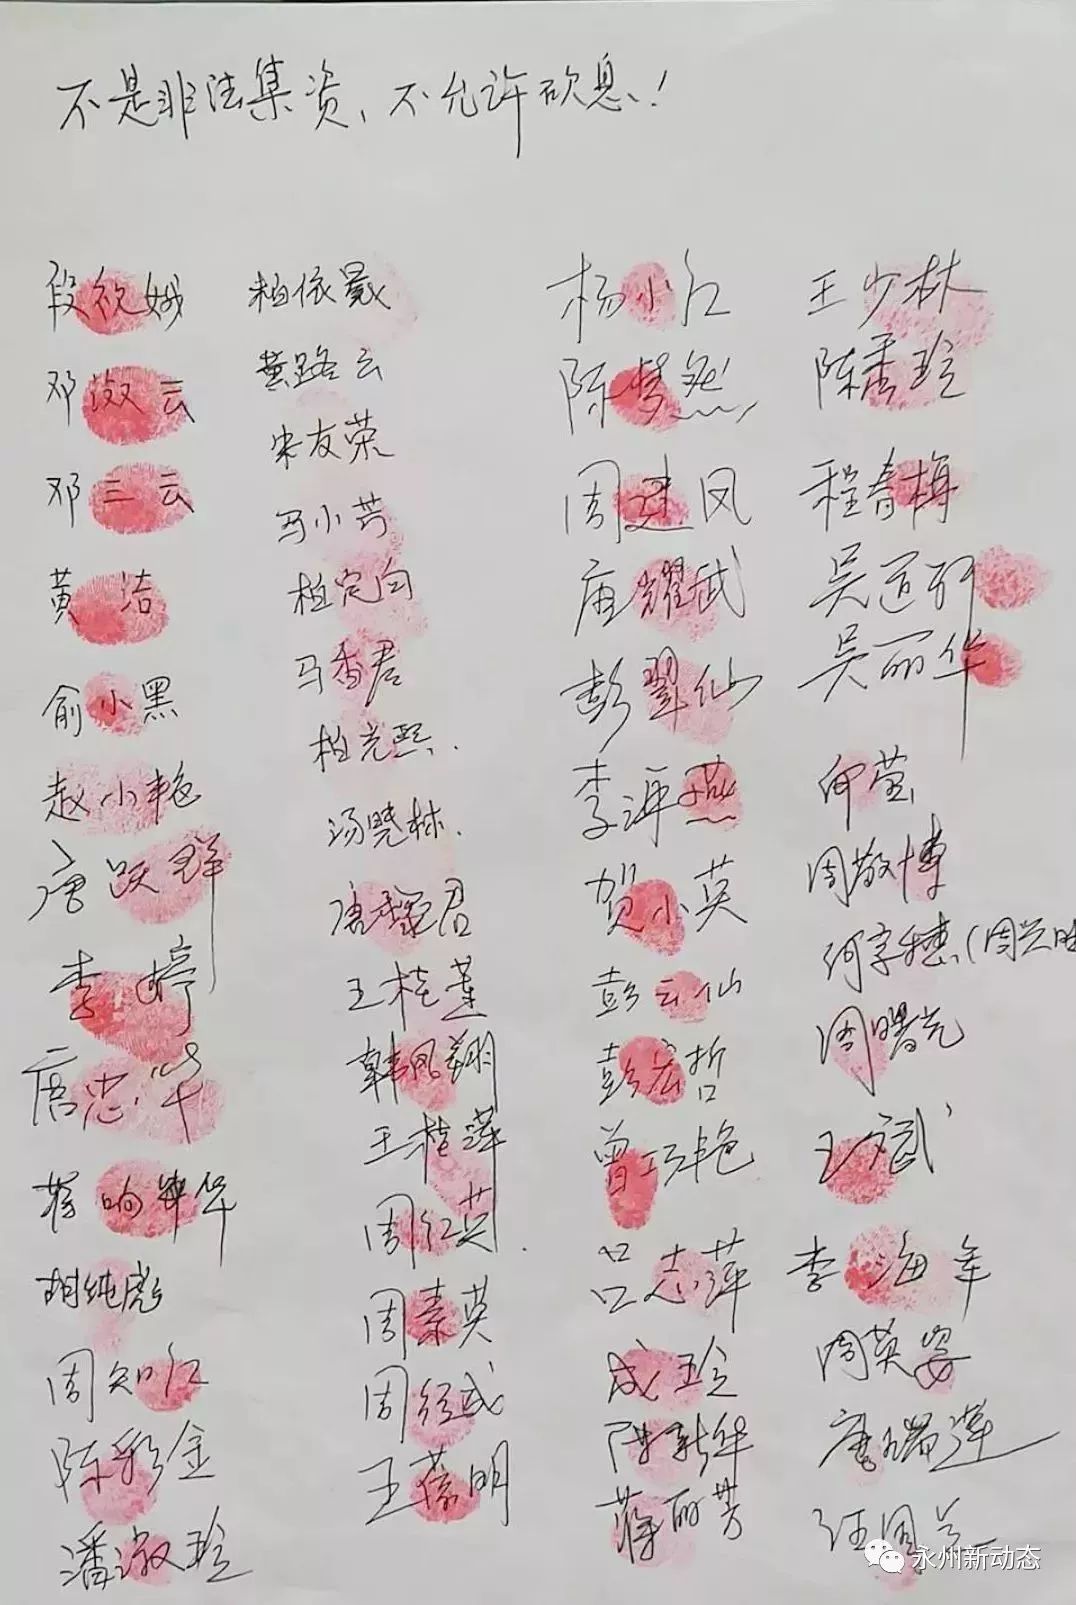 不是非法集资、不允许砍息！
段欽娥
邓淑云
邓三云
黄洁
俞小黑
赵小艳
唐跃群
李婷
唐忠华
蒋响华
胡纯彪
周知江
陈彩金
潘淑珍
柏依宸
黄路云
宋友荣
马小芳
柏定向
马香君
柏光熙.
汤晓林.
唐君
王桂莲
韩凤翔
王桂莲
周红英.
周素英
周红成
王蓉明
杨小红
陈梦然
周建凤
唐耀武
彭翠仙
李海燕
贺小英
彭云仙
彭宏哲
曾巧艳
吕志萍
成珍
陈新华
蒋丽芳
王少林
陈秀珍
程春梅
吴道
吴丽华
何莹
周敬博
何字穗(周兰
周曙光
王斌
李海年
周英姿
唐瑞莲
汪国兰
永州新动态